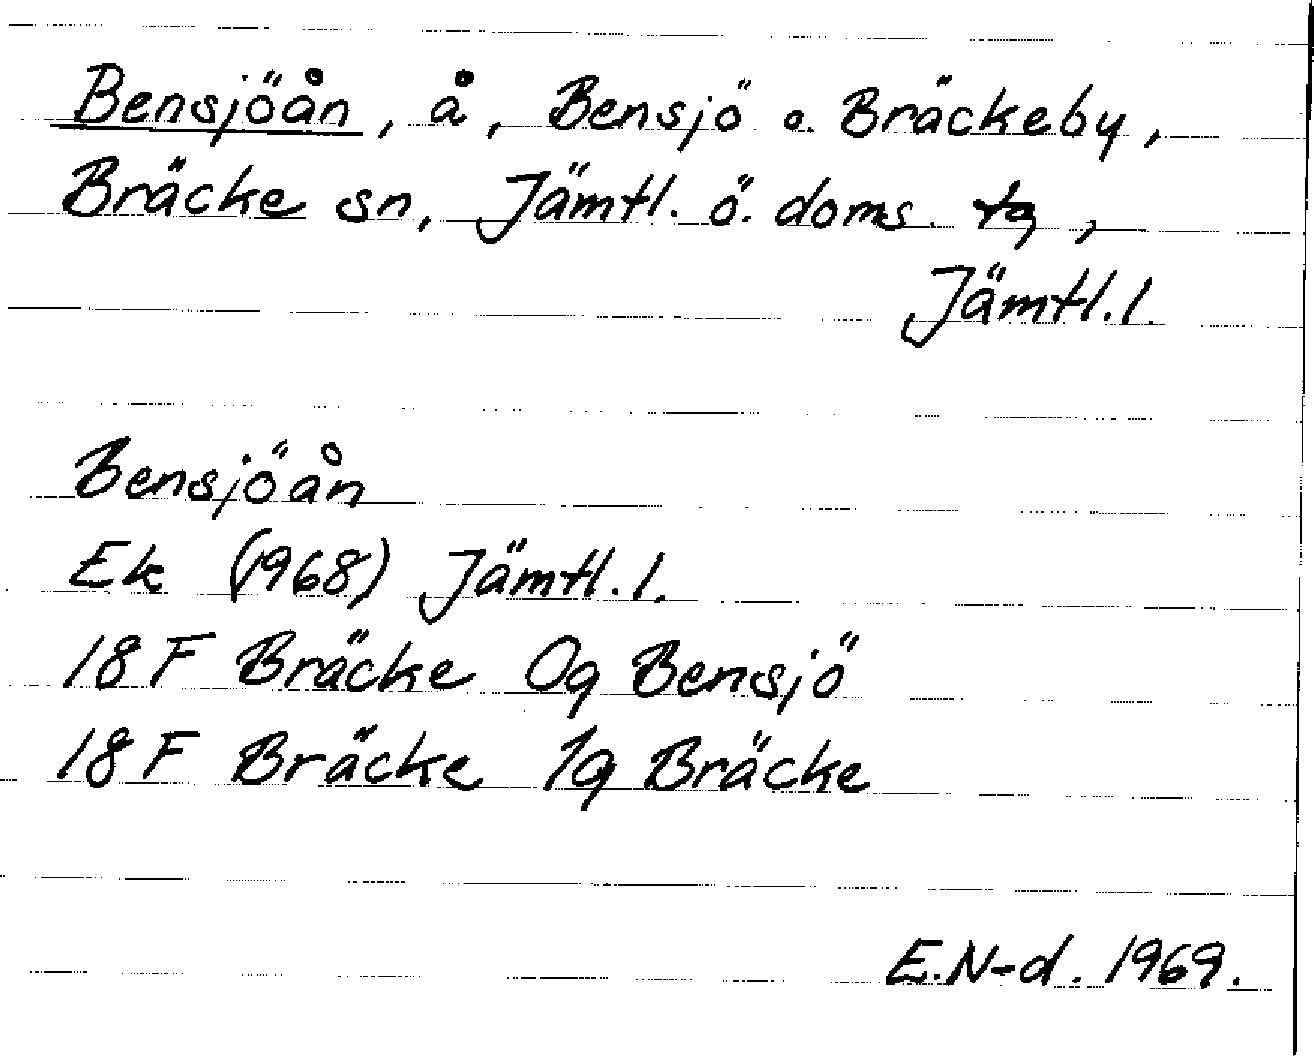 Bensjöån, å, Bensjö o. Bräckeby,
Bräcke sn, Jämtl. ö. doms. tg,
Jämtl. l.
Bensjöån
Ek (1968) Jämtl. l.
18 F Bräcke 0g Bensjö
18 F Bräcke 1g Bräcke
E.N-d. 1969.